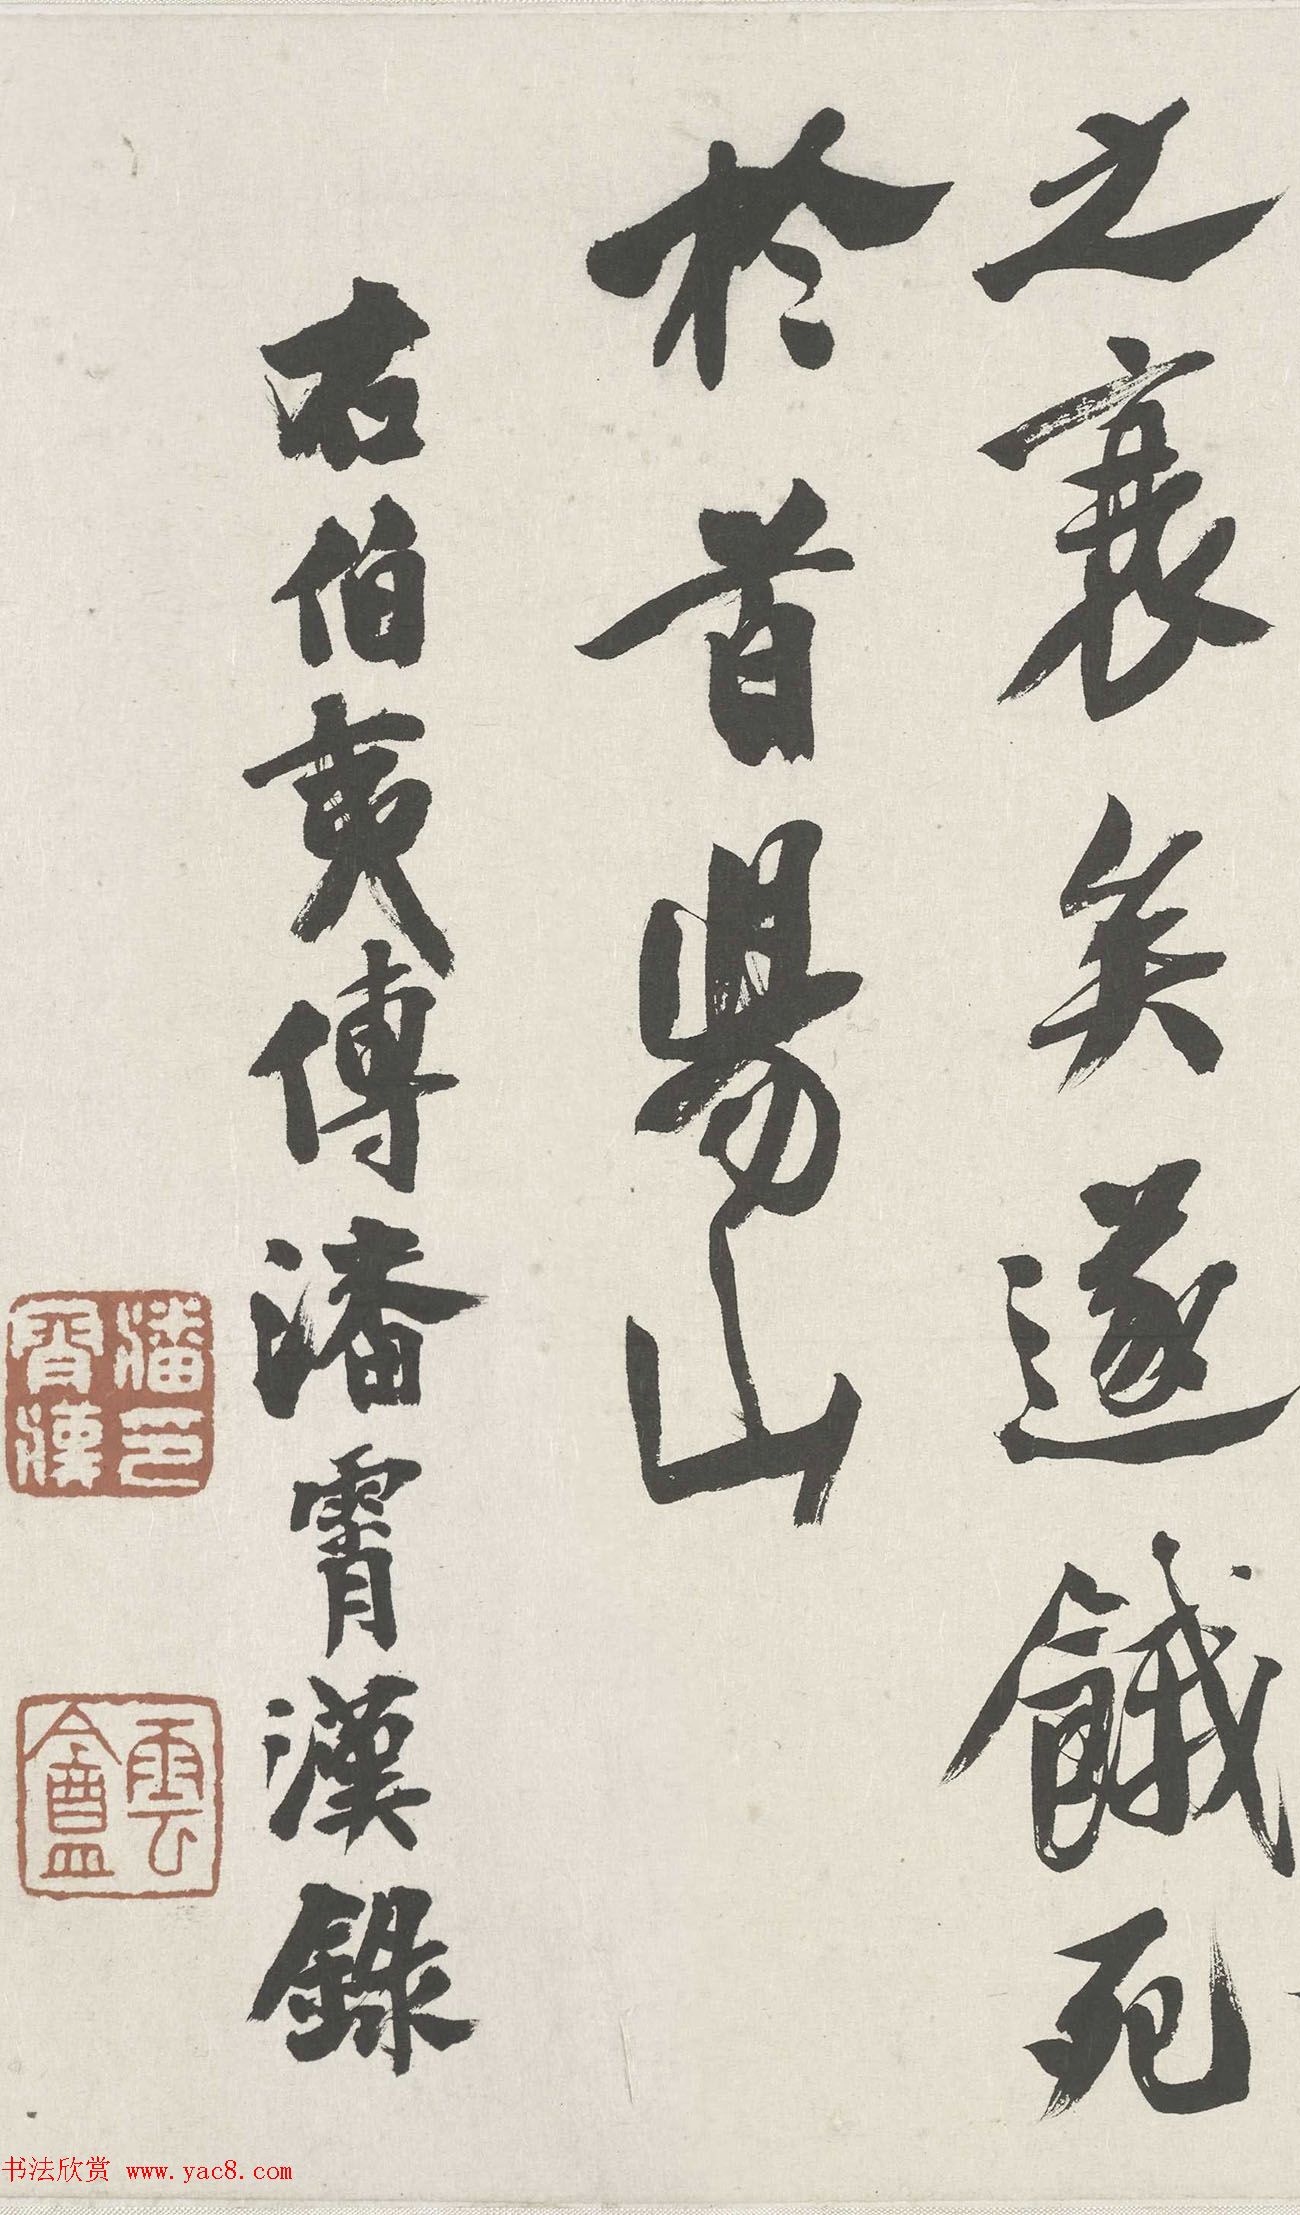 之衰矣遂餓死
於首昜山
右伯夷傳潘霄漢錄
潘霄漢印
雲盦
书法欣赏 www.yac8.com